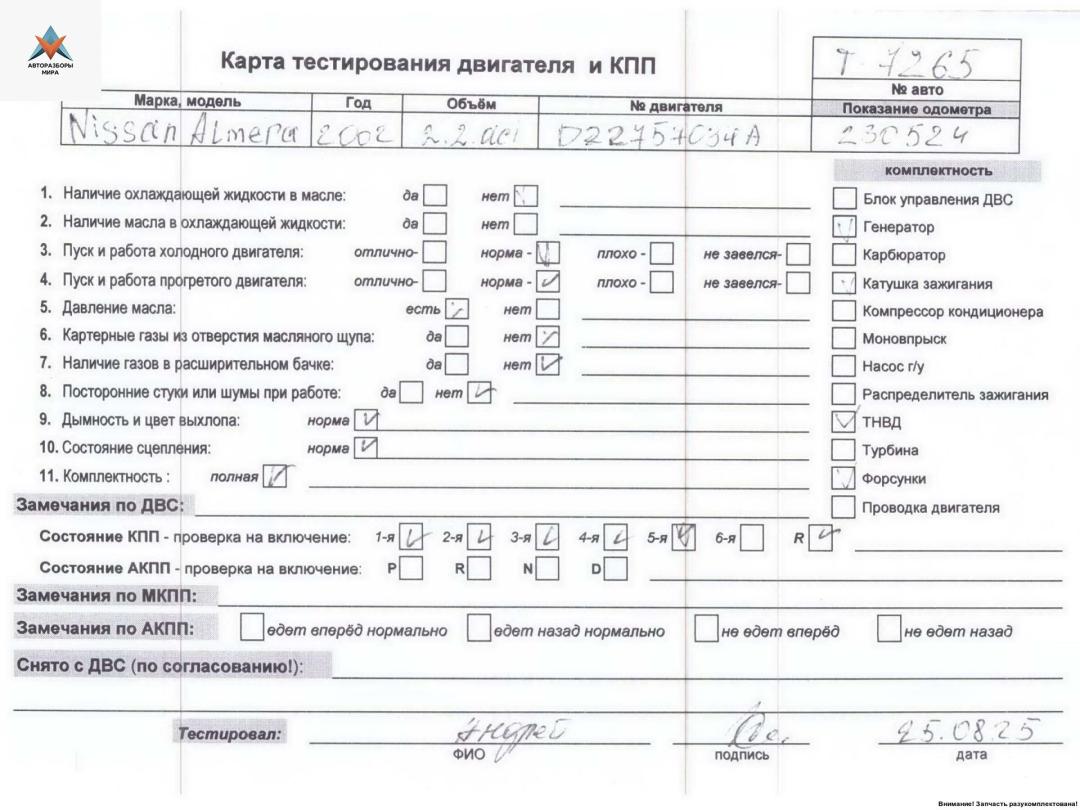 АВТОРАЗБОРЫ
МИРА
Карта тестирования двигателя и КПП
Т-7265
№ авто
Марка, модель Год Объём № двигателя Показание одометра
Nissan Almera 2002 2.2 dci D22757034A 230524
комплектность
1. Наличие охлаждающей жидкости в масле: да нет
Блок управления ДВС
2. Наличие масла в охлаждающей жидкости: да нет
Генератор
3. Пуск и работа холодного двигателя: отлично- норма - плохо - не завелся-
Карбюратор
4. Пуск и работа прогретого двигателя: отлично- норма - плохо - не завелся-
Катушка зажигания
5. Давление масла: есть нет
Компрессор кондиционера
6. Картерные газы из отверстия масляного щупа: да нет
Моновпрыск
7. Наличие газов в расширительном бачке: да нет
Насос г/у
8. Посторонние стуки или шумы при работе: да нет
Распределитель зажигания
9. Дымность и цвет выхлопа: норма
ТНВД
10. Состояние сцепления: норма
Турбина
11. Комплектность : полная
Форсунки
Замечания по ДВС:
Проводка двигателя
Состояние КПП - проверка на включение: 1-я 2-я 3-я 4-я 5-я 6-я R
Состояние АКПП - проверка на включение: P R N D
Замечания по МКПП:
Замечания по АКПП: едет вперёд нормально едет назад нормально не едет вперёд не едет назад
Снято с ДВС (по согласованию!):
Тестировал: Андрей 25.08.25
ФИО подпись дата
Внимание! Запчасть разукомплектована!